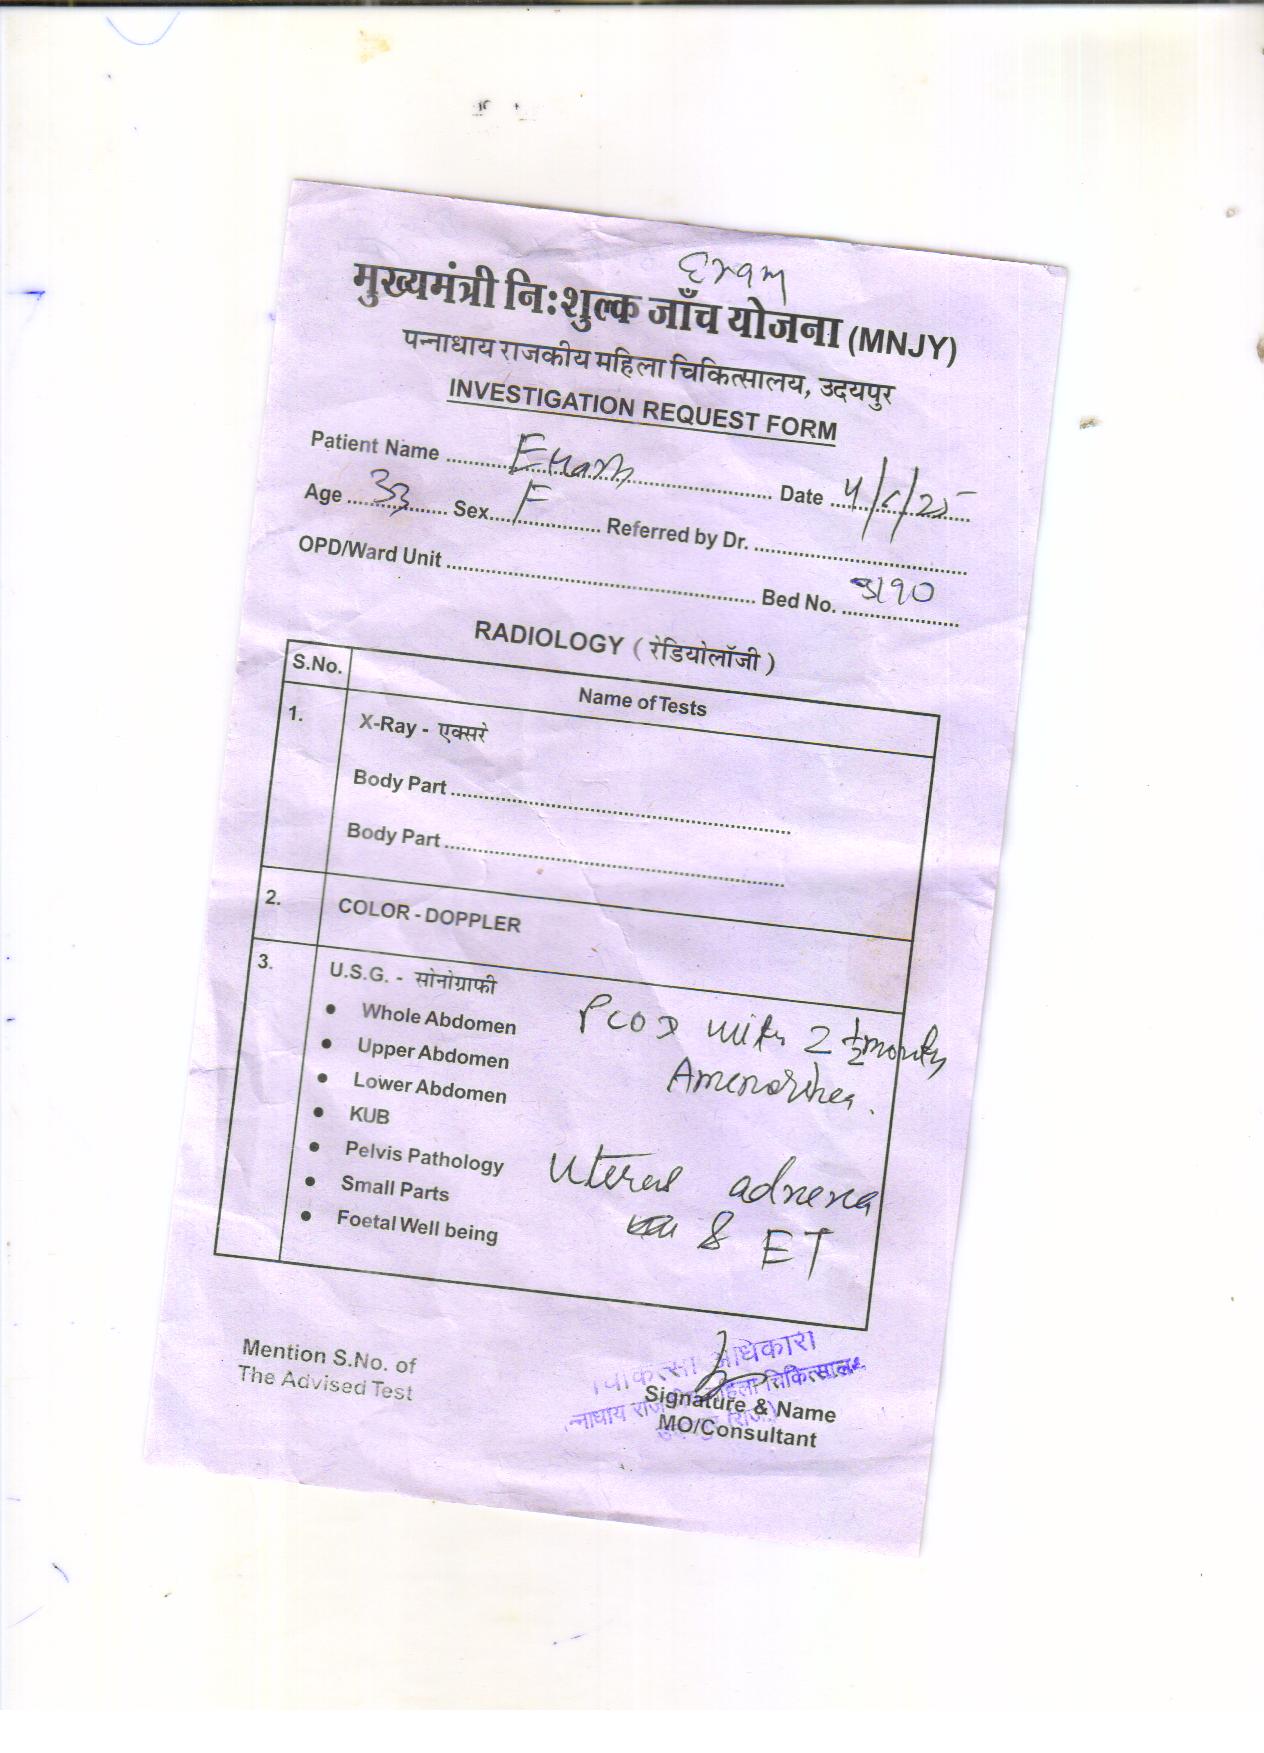 Eram
मुख्यमंत्री निःशुल्क जाँच योजना (MNJY)
पन्नाधाय राजकीय महिला चिकित्सालय, उदयपुर
INVESTIGATION REQUEST FORM
Patient Name Date
Age 33 Sex F Referred by Dr.
OPD/Ward Unit Bed No. 3190
RADIOLOGY ( रेडियोलॉजी )
S.No. Name of Tests
1. X-Ray - एक्सरे
Body Part
Body Part
2. COLOR - DOPPLER
3. U.S.G. - सोनोग्राफी
• Whole Abdomen
• Upper Abdomen
• Lower Abdomen
• KUB
• Pelvis Pathology
• Small Parts
• Foetal Well being
PCOD with 2 1/2 months
Amenorrhea.
Uterus adnexa
& ET
Mention S.No. of
The Advised Test
चिकित्सा अधिकारी
महिला चिकित्सालय
Signature & Name
MO/Consultant